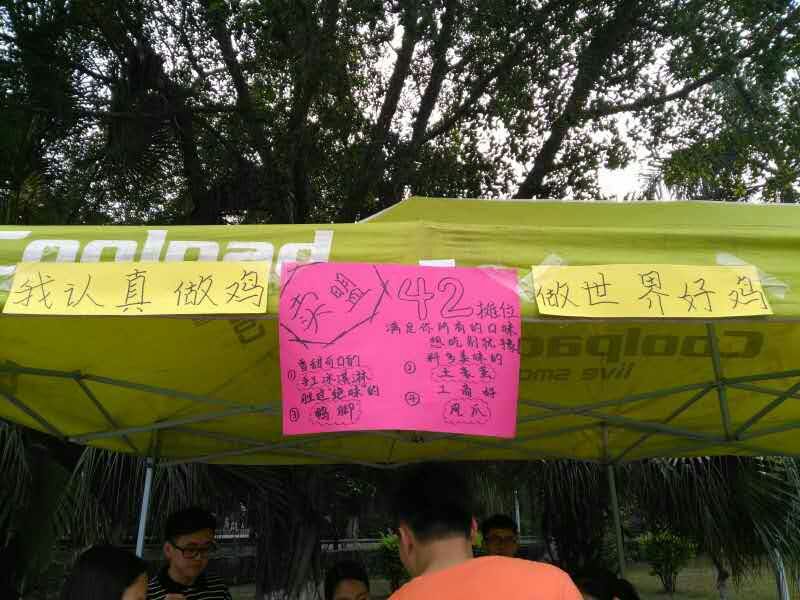 Coolpad
我认真做鸡
家盟
42摊位
满足你所有的口味
想吃别犹豫
香甜可口的
①手工冰淇淋
胜过绝味的
③鸭脚
料多美味的
②
④
凤爪
做世界好鸡
Coolpad
live smart